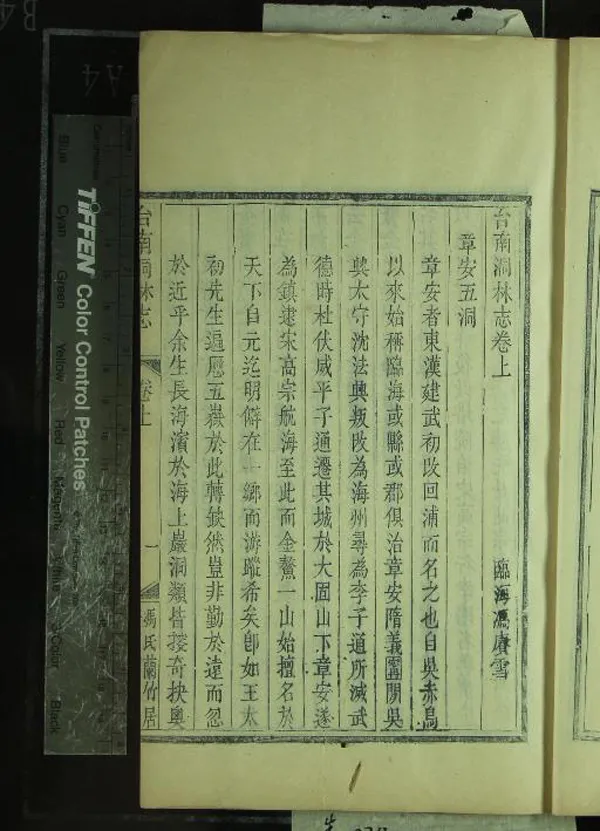 台南洞林志卷上
臨海馮賡雪
章安五洞
章安者東漢建武初改回浦而名之也自吳赤烏
以來始稱臨海或縣或郡俱治章安隋義寧間吳
興太守沈法興叛改為海州尋為李子通所滅武
德時杜伏威平子通遷其城於大固山下章安遂
為鎮逮宋高宗航海至此而金鰲一山始擅名於
天下自元迄明僻在一鄉而游蹤希矣卽如王太
初先生遍歷五嶽於此轉缺然豈非勤於遠而忽
於近乎余生長海濱於海上巖洞類皆搜奇抉奧
台南洞林志
卷上
一
馮氏蘭竹居
TIFFEN Color Control Patches
Blue
Cyan
Green
Yellow
Red
Magenta
Color
Black
A4